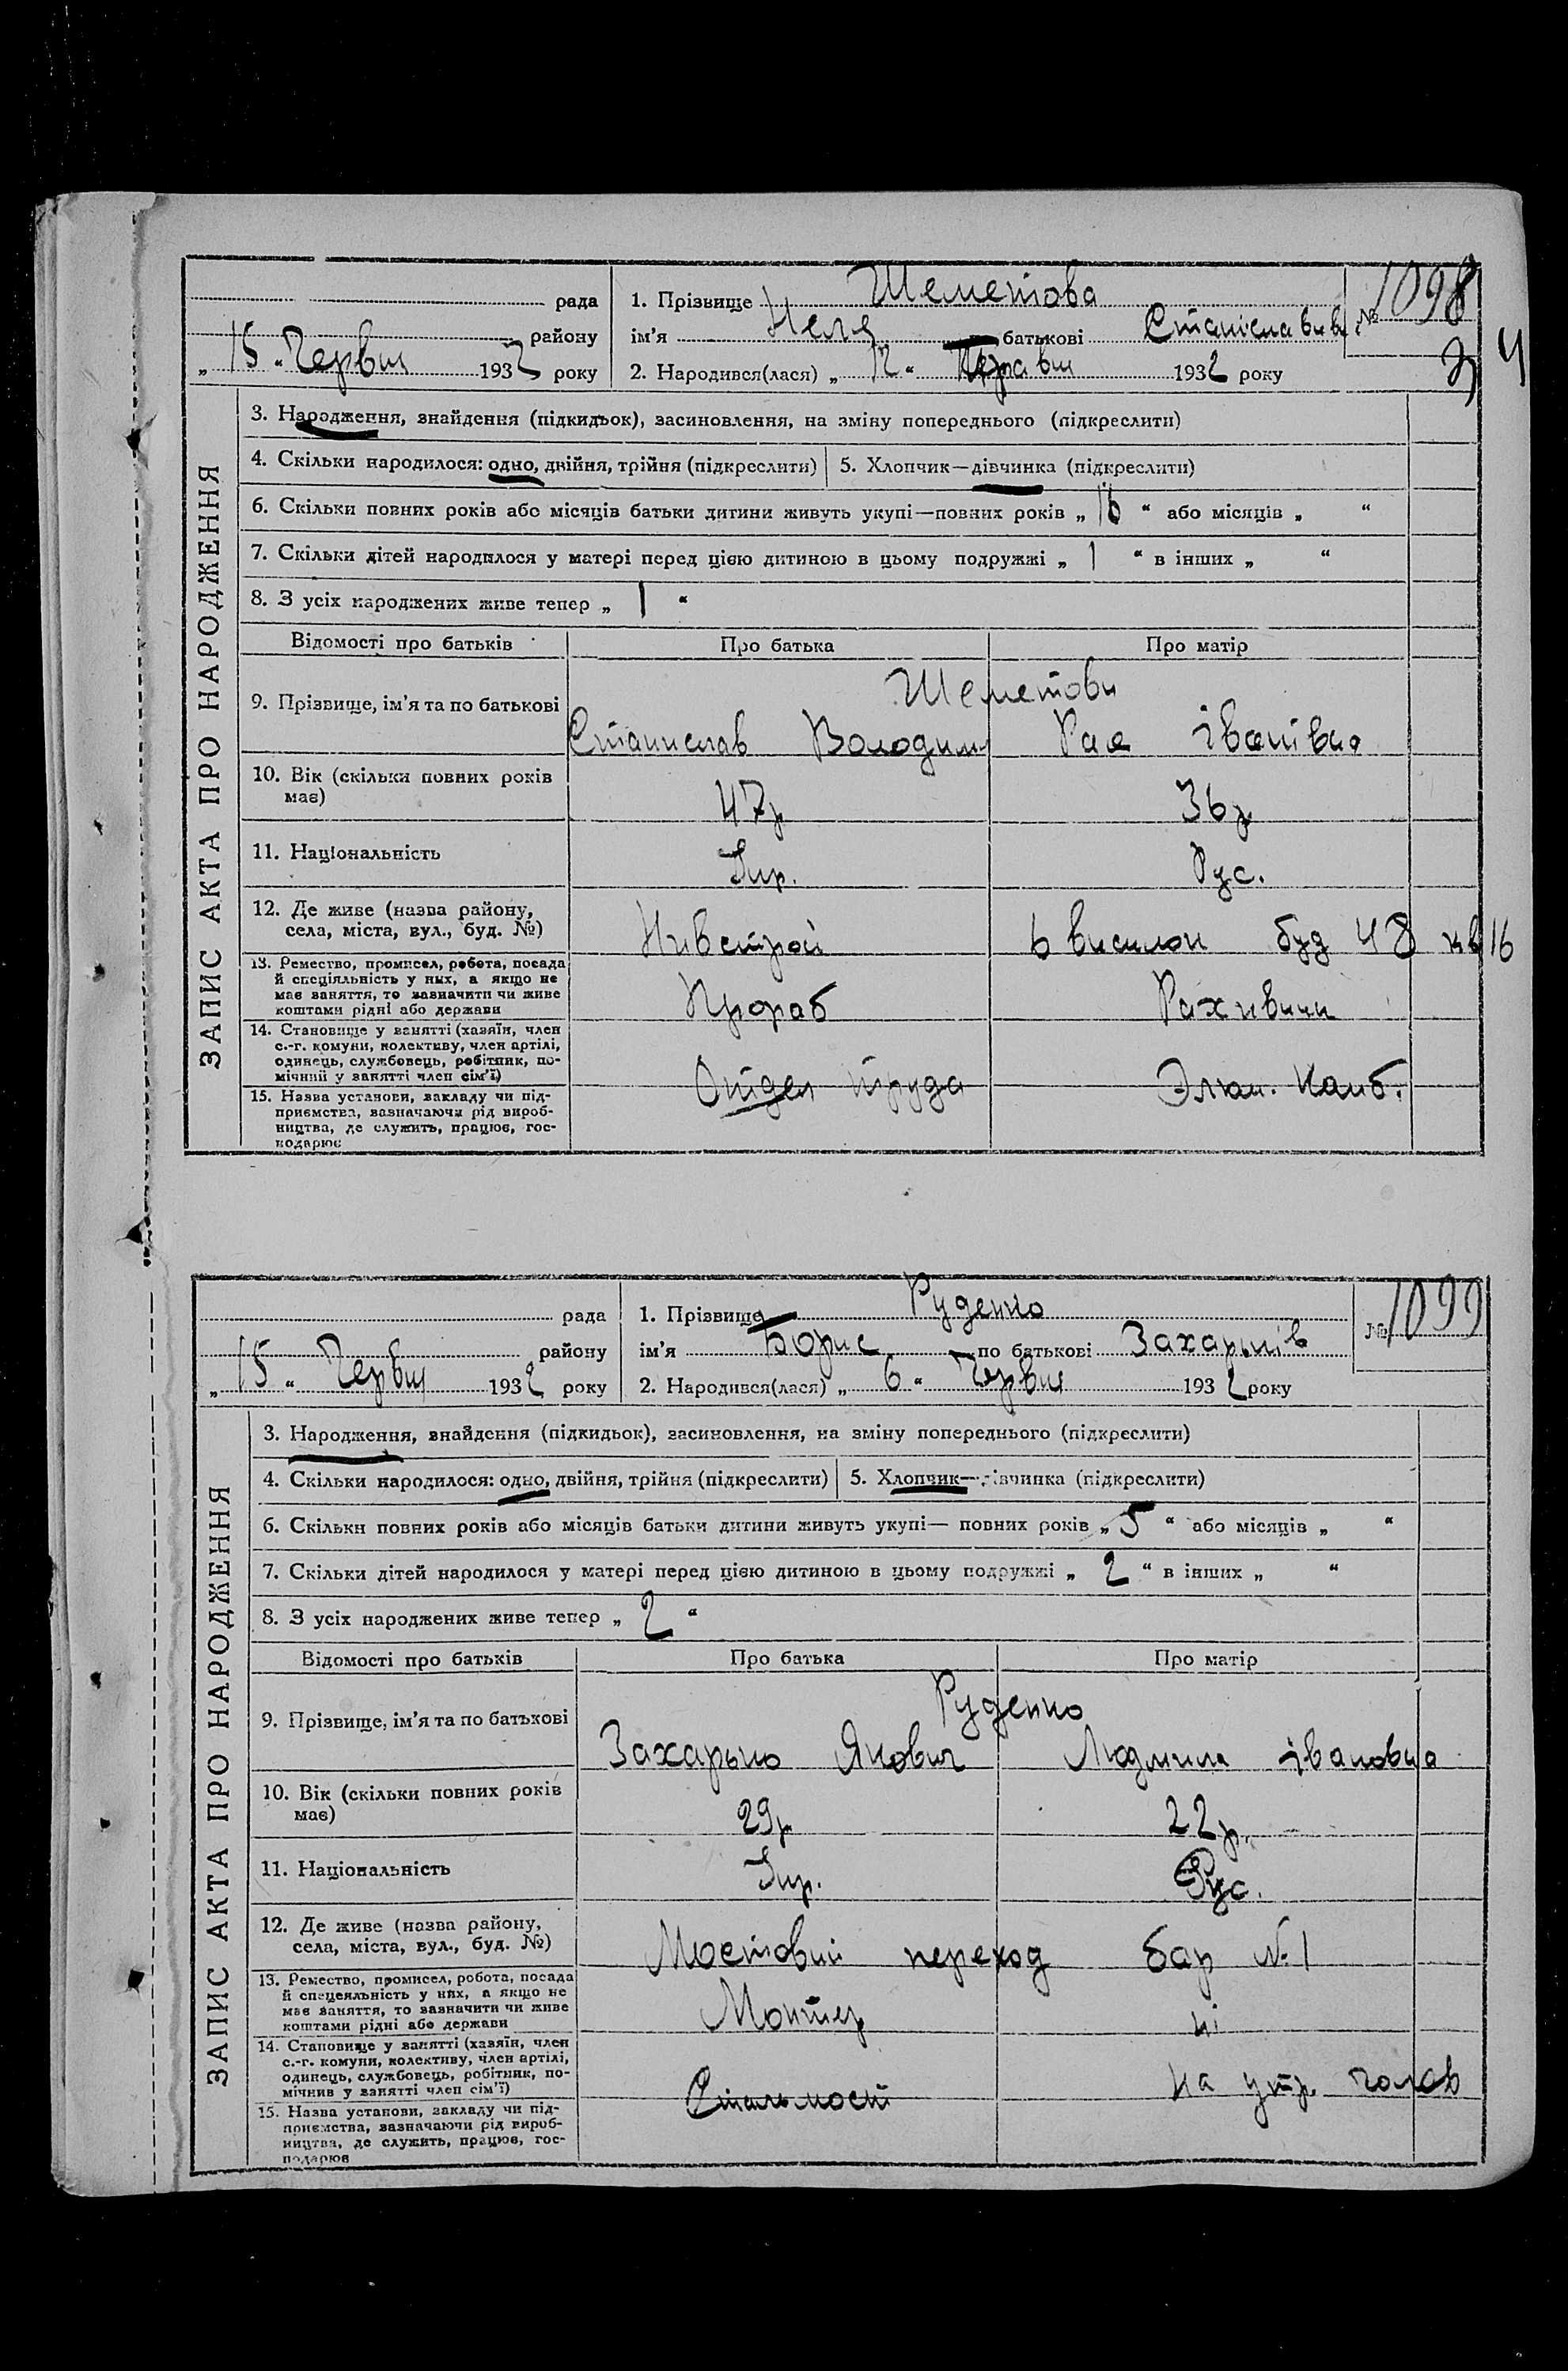 рада
1. Прізвище Шеметова
№ 1098
району
ім'я Неля батькові
„ 15 “ Червня 1932 року
2. Народився(лася) „ 12 “ 1932 року
4
3. Народження, знайдення (підкидьок), засиновлення, на зміну попереднього (підкреслити)
4. Скільки народилося: одно, двійня, трійня (підкреслити)
5. Хлопчик—дівчинка (підкреслити)
6. Скільки повних років або місяців батьки дитини живуть укупі—повних років „ 16 “ або місяців „ “
7. Скільки дітей народилося у матері перед цією дитиною в цьому подружжі „ 1 “ в інших „ “
8. З усіх народжених живе тепер „ 1 “
ЗАПИС АКТА ПРО НАРОДЖЕННЯ
Відомості про батьків
Про батька
Про матір
9. Прізвище, ім'я та по батькові
Шеметови
Станислав Володим
Рая Іванівна
10. Вік (скільки повних років
має)
47р
36р
11. Національність
Укр.
Рус.
12. Де живе (назва району,
села, міста, вул., буд. №)
6 виселок буд 48 кв 16
13. Ремество, промисел, робота, посада
й спеціяльність у них, а якщо не
має заняття, то зазначити чи живе
коштами рідні або держави
Прораб
14. Становище у занятті (хазяїн, член
с.-г. комуни, колективу, член артілі,
одинець, службовець, робітник, по-
мічний у занятті член сім'ї)
Отдел труда
15. Назва установи, закладу чи під-
приємства, зазначаючи рід вироб-
ництва, де служить, працює, гос-
подарює
рада
1. Прізвище Руденко
№ 1099
району
ім'я Борис по батькові Захарьків
„ 15 “ Червня 1932 року
2. Народився(лася) „ 6 “ Червня 1932 року
3. Народження, знайдення (підкидьок), засиновлення, на зміну попереднього (підкреслити)
4. Скільки народилося: одно, двійня, трійня (підкреслити)
5. Хлопчик—дівчинка (підкреслити)
6. Скільки повних років або місяців батьки дитини живуть укупі— повних років „ 5 “ або місяців „ “
7. Скільки дітей народилося у матері перед цією дитиною в цьому подружжі „ 2 “ в інших „ “
8. З усіх народжених живе тепер „ 2 “
ЗАПИС АКТА ПРО НАРОДЖЕННЯ
Відомості про батьків
Про батька
Про матір
9. Прізвище, ім'я та по батькові
Руденко
Захарько Якович
Людмила Івановна
10. Вік (скільки повних років
має)
29р
22р.
11. Національність
Укр.
Рус.
12. Де живе (назва району,
села, міста, вул., буд. №)
Мостовий переход бар № 1
13. Ремество, промисел, робота, посада
й спецеяльність у них, а якщо не
має заняття, то зазначити чи живе
коштами рідні або держави
Монтер
ні
14. Становище у занятті (хазяїн, член
с.-г. комуни, колективу, член артілі,
одинець, службовець, робітник, по-
мічнив у занятті член сім'ї)
Стальмост
на утр. голов
15. Назва установи, закладу чи під-
приємства, зазначаючи рід вироб-
ництва, де служить, працює, гос-
подарює